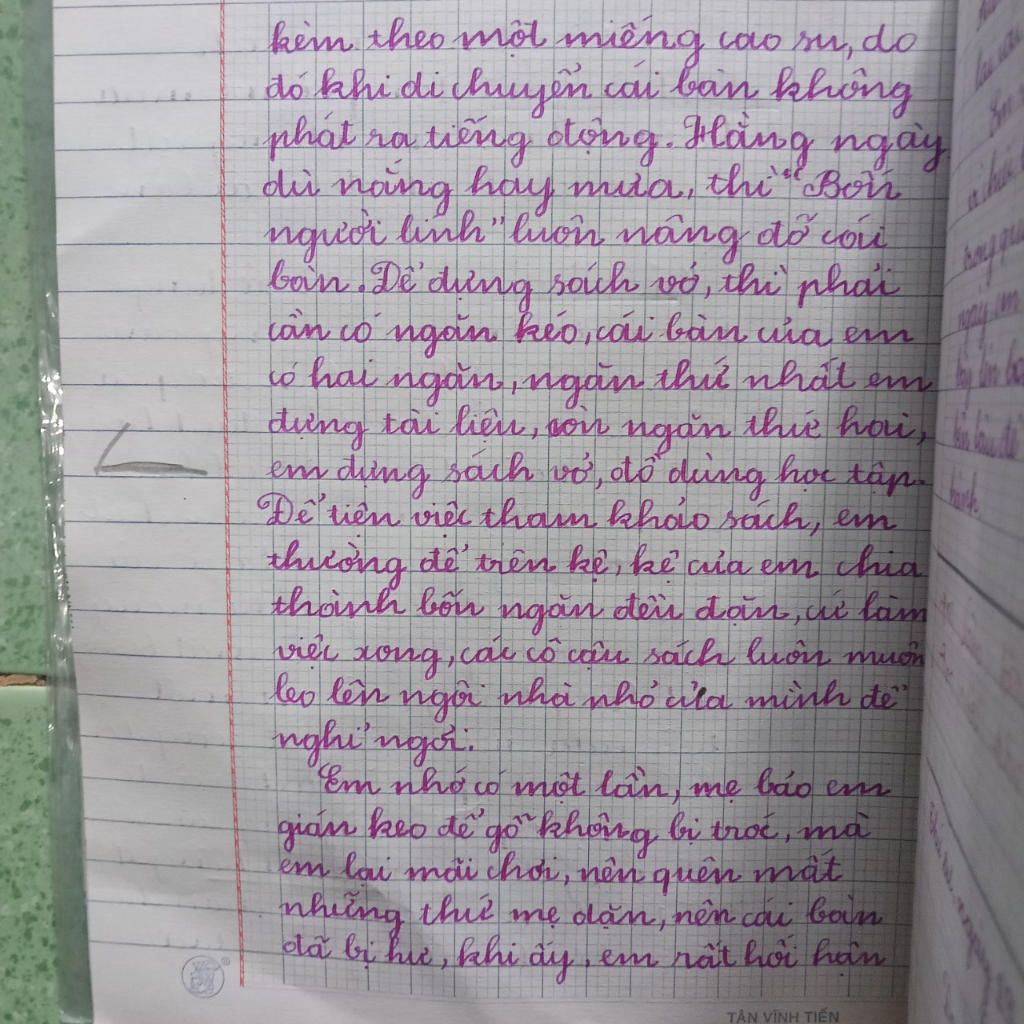 kèm theo một miếng cao su, do
đó khi di chuyển cái bàn không
phát ra tiếng động. Hằng ngày
dù nắng hay mưa, thì "Bốn
người lính" luôn nâng đỡ cái
bàn. Để đựng sách vở, thì phải
cần có ngăn kéo, cái bàn của em
có hai ngăn, ngăn thứ nhất em
đựng tài liệu, còn ngăn thứ hai,
em đựng sách vở, đồ dùng học tập.
Để tiện việc tham khảo sách, em
thường để trên kệ, kệ của em chia
thành bốn ngăn đều đặn, cứ làm
việc xong, các cô cậu sách luôn muốn
leo lên ngôi nhà nhỏ của mình để
nghỉ ngơi.
Em nhớ có một lần, mẹ bảo em
gián keo để gỗ không bị tróc, mà
em lại mãi chơi, nên quên mất
những thứ mẹ dặn, nên cái bàn
đã bị hư, khi ấy, em rất hối hận
TÂN VĨNH TIẾN